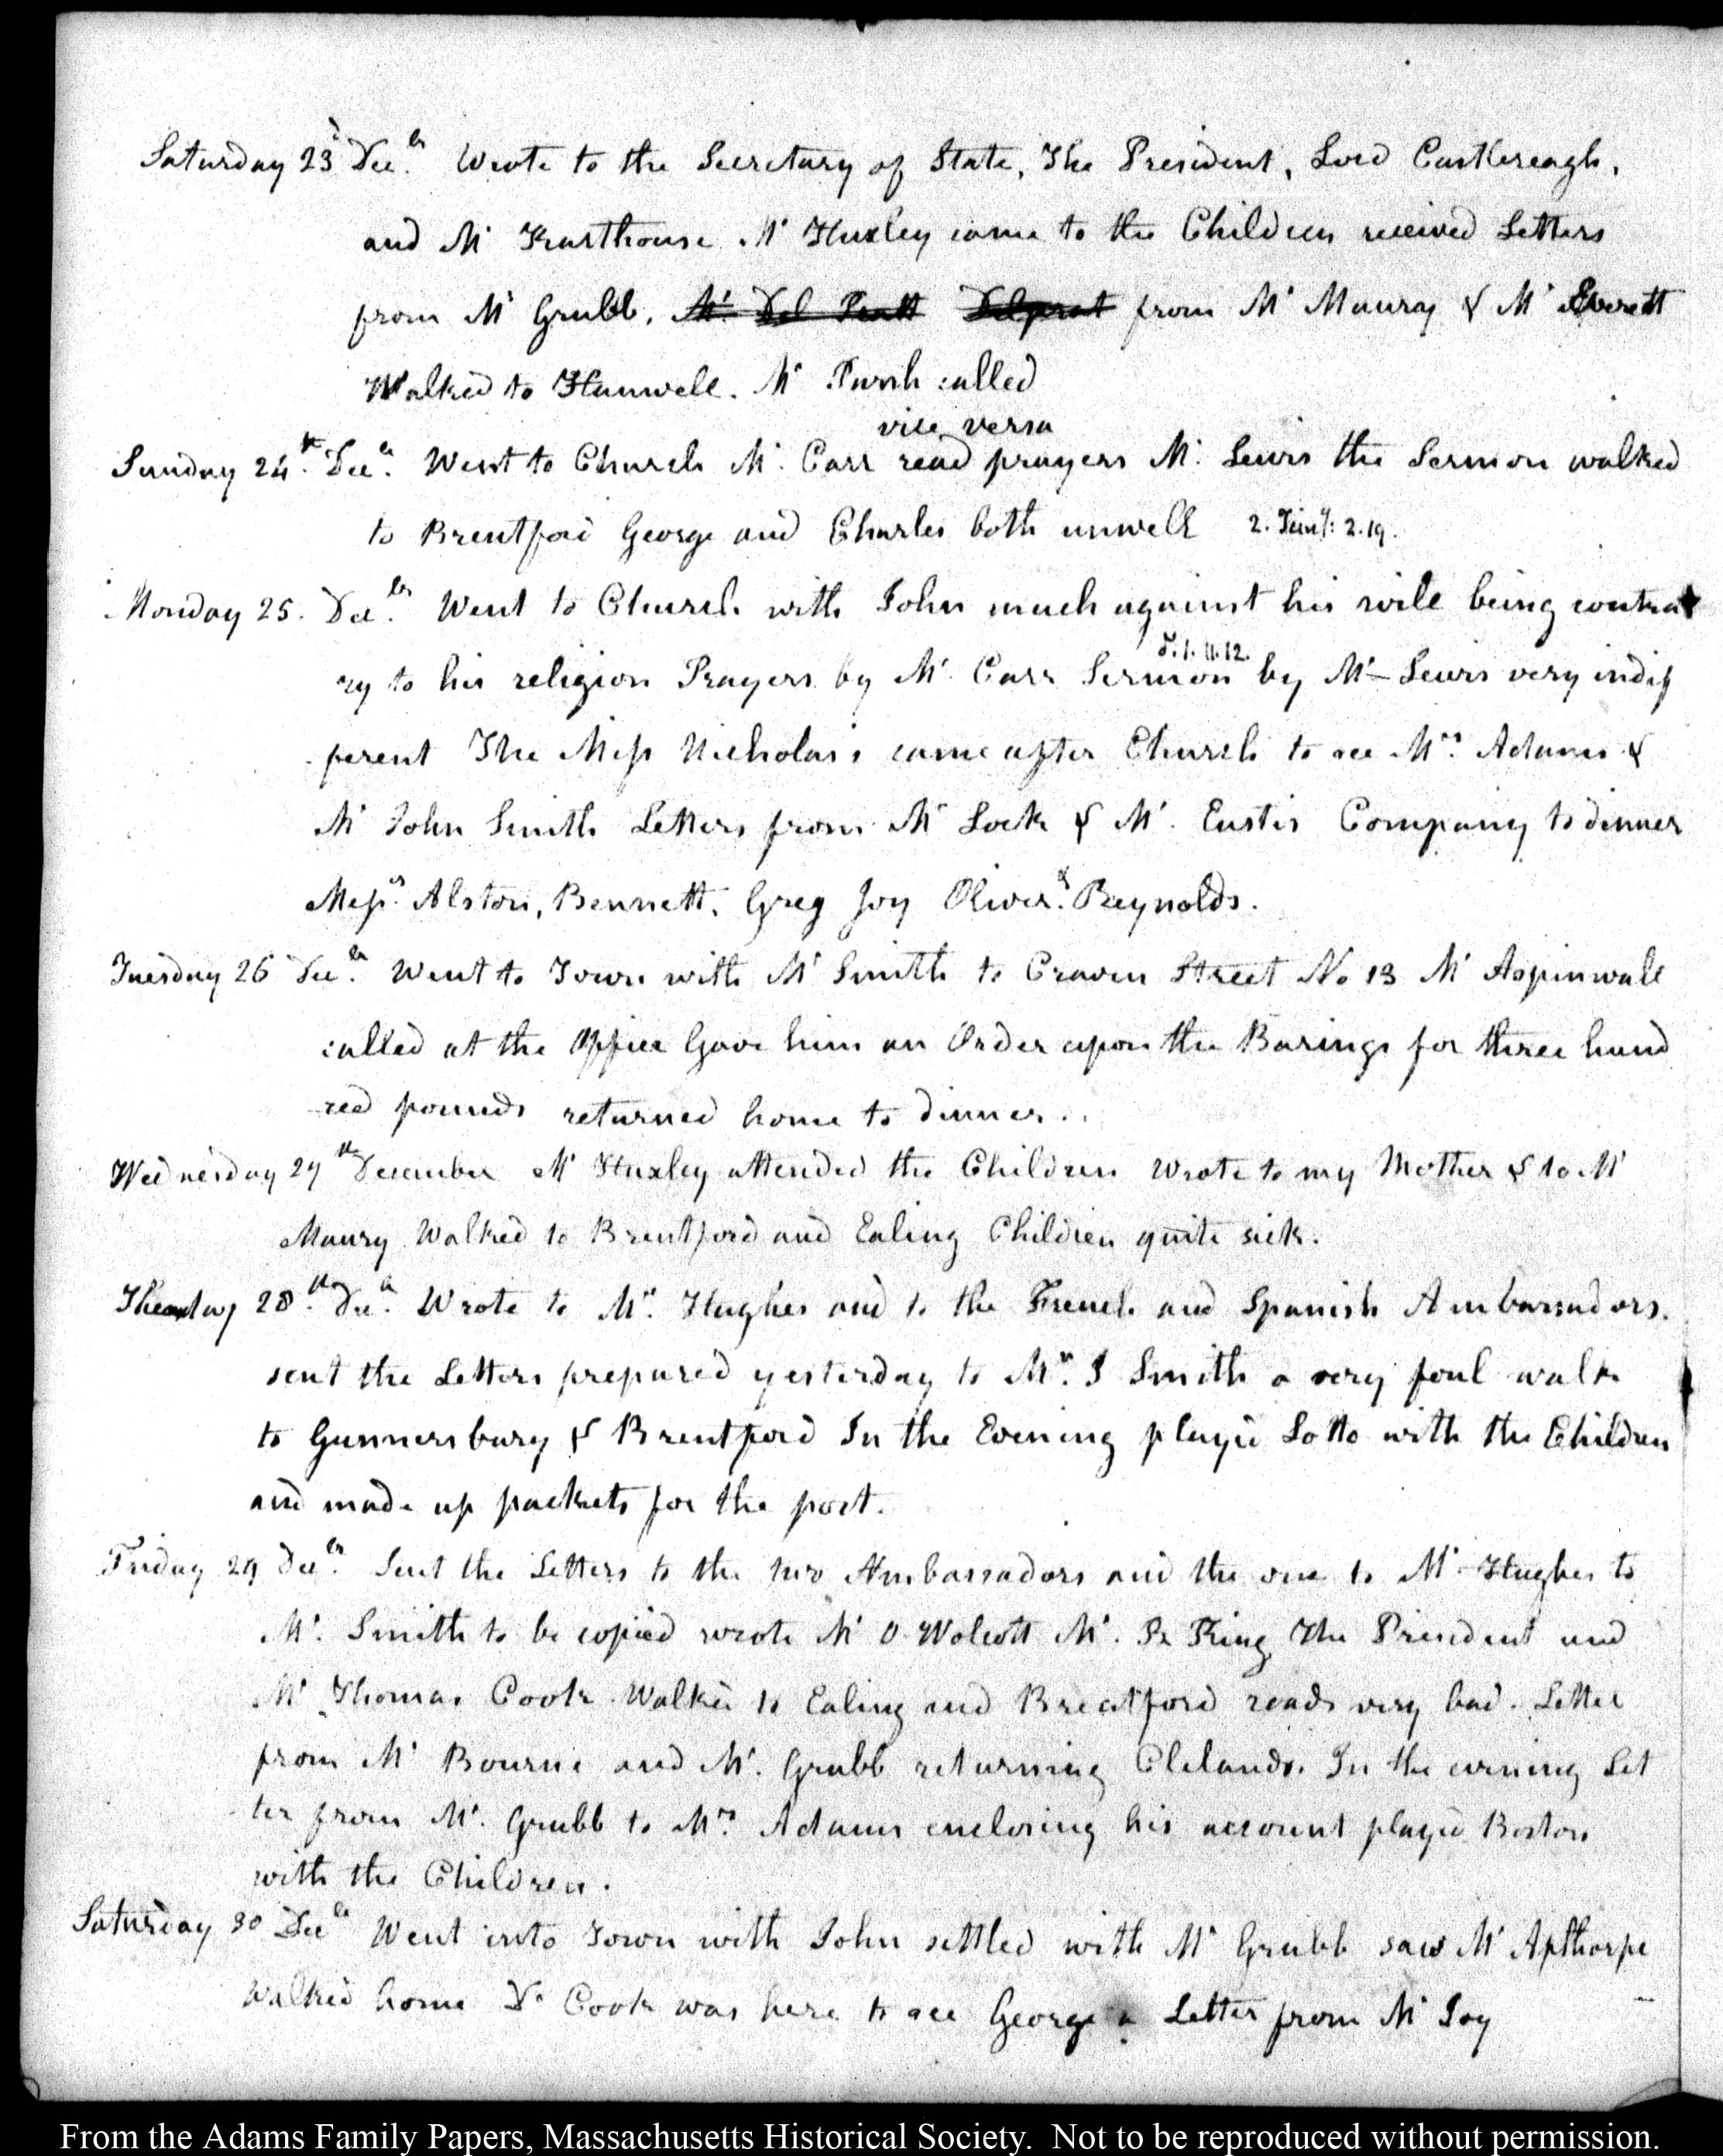 Saturday 23d Decr. Wrote to the Secretary of State, The President, Lord Castlereagh,
and Mr. Mr Huxley came to the Children received Letters
from Mr Grubb, Mr. Del Pratt Delprat from Mr Maury & Mr Everett
Walked to Hanwell. Mr called
vice versa
Sunday 24th. Decr. Went to Church Mr. Carr read prayers Mr. Lewis the Sermon walked
to Brentford George and Charles both unwell 2. Timy: 2.19.
Monday 25. Decbr. Went to Church with John much against his will being contra
ry to his religion Prayers by Mr. Carr Sermon by Mr Lewis very indif
ferent The Miss Nicholas's came after Church to see Mrs. Adams &
Mr John Smith Letters from Mr Lock & Mr. Eustis Company to dinner
Messrs. Alston, Bennett, Greg Joy Oliver. & Reynolds.
Tuesday 26 Decbr. Went to Town with Mr Smith to Craven Street No 13 Mr Aspinwall
called at the Office Gave him an Order upon the Barings for three hund
red pounds returned home to dinner..
Wednesday 27th December Mr Huxley attended the Children Wrote to my Mother & to Mr
Maury Walked to Brentford and Ealing Children quite sick.
28.th Decr. Wrote to Mr. Hughes and to the French and Spanish Ambassadors.
sent the Letters prepared yesterday to Mr. J Smith a very foul walk
to Gunnersbury & Brentford In the Evening playd Lotto with the Children
and made up packets for the post.
Friday 29 Decbr. Sent the Letters to the two Ambassadors and the one to Mr. Hughes to
Mr. Smith to be copied wrote Mr O Wolcott Mr. R King The President and
Mr Thomas Cook Walked to Ealing and Brentford roads very bad. Letter
from Mr Bourne and Mr. Grubb returning Clelands. In the evening Let
ter from Mr. Grubb to Mrs. Adams enclosing his account playd Boston
with the Children.
Saturday 30 Decbr Went into Town with John settled with Mr Grubb saw Mr Apthorpe
Walked home Dr Cook was here to see George a Letter from Mr Joy
From the Adams Family Papers, Massachusetts Historical Society. Not to be reproduced without permission.